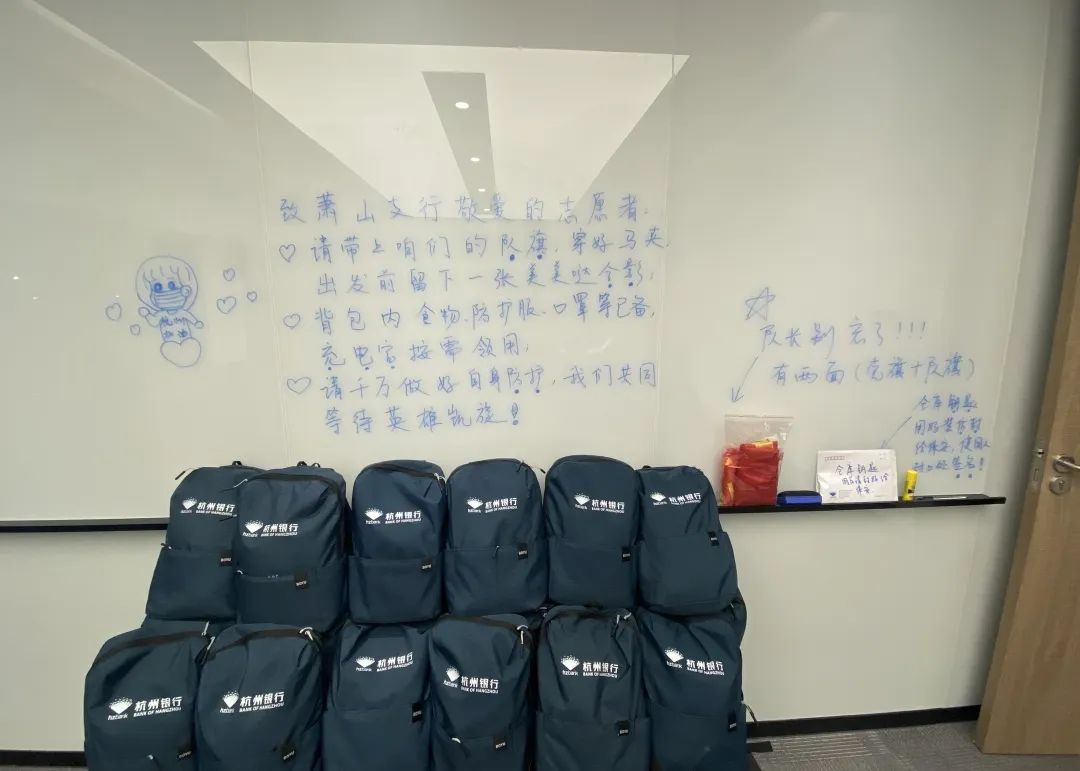 致萧山支行敬爱的志愿者：
♡ 请带上咱们的队旗，穿好马夹，
出发前留下一张美美哒合影；
♡ 背包内食物、防护服、口罩等已备，
充电宝按需领用；
♡ 请千万做好自身防护，我们共同
等待英雄凯旋！
☆
队长别忘了!!!
有两面（党旗+队旗）
仓库钥匙
仓库钥匙
杭州银行
BANK OF HANGZHOU
hzbank
杭州银行
BANK OF HANGZHOU
hzbank
杭州银行
BANK OF HANGZHOU
hzbank
杭州银行
BANK OF HANGZHOU
hzbank
杭州银行
BANK OF HANGZHOU
hzbank
杭州银行
BANK OF HANGZHOU
hzbank
杭州银行
BANK OF HANGZHOU
hzbank
杭州银行
BANK OF HANGZHOU
hzbank
杭州银行
BANK OF HANGZHOU
hzbank
杭州银行
BANK OF HANGZHOU
hzbank
杭州银行
BANK OF HANGZHOU
hzbank
杭州银行
BANK OF HANGZHOU
hzbank